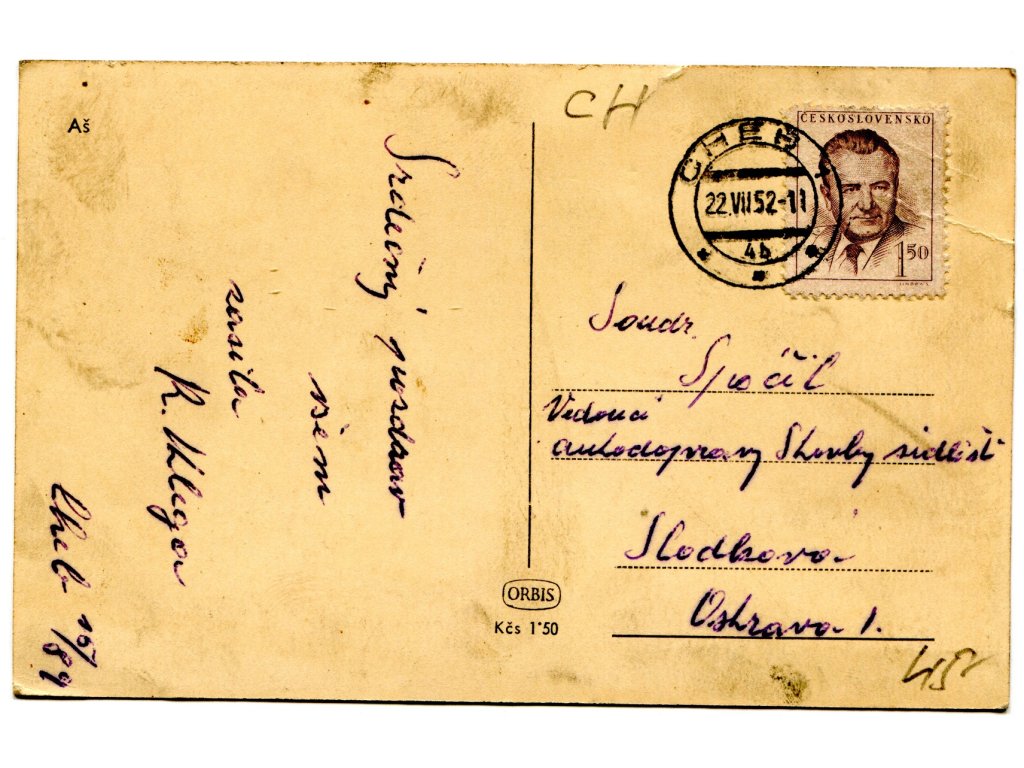 Aš
Srdečný pozdrav
všem
zasílá
K. Kliga
Cheb
CH
CHEB 1
22.VII.52-11
4b
ČESKOSLOVENSKO
1 50
Soudr.
Spáčil
Vedoucí
autodopravy Stavby sidlišť
Sladkova
Ostrava 1.
ORBIS
Kčs 1·50